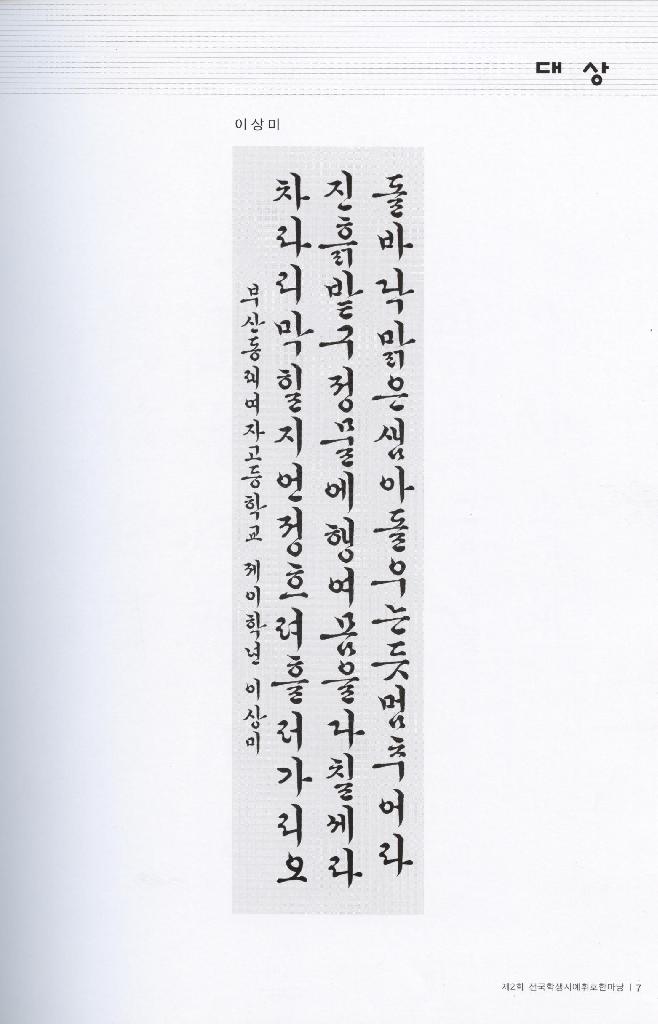 대 상
이상미
돌바닥맑은샘아돌우는듯멈추어라
진흙밭구정물에행여몸을다칠세라
차라리막힐지언정흐려흘러가리오
부산동래여자고등학교 제이학년 이상미
제2회 전국학생서예휘호한마당 | 7